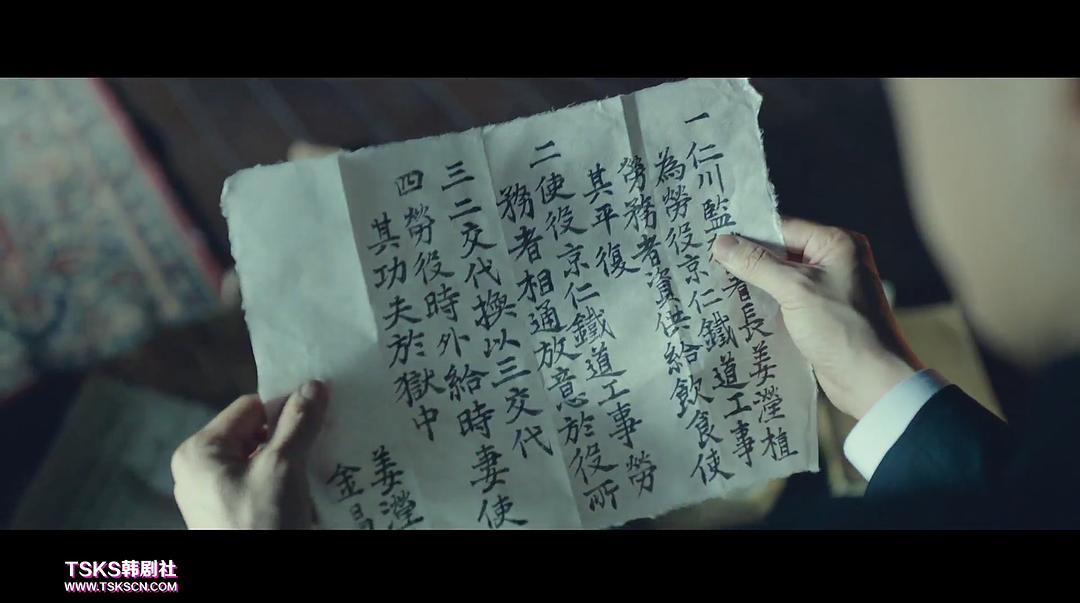 一仁川監長姜瀅植
為勞役京仁鐵道工事
勞務者資供給飲食使
其平復
二使役京仁鐵道工事勞
務者相通放意於役所
三二交代換以三交代
四勞役時外給時妻使
其功夫於獄中
姜瀅
金
TSKS韩剧社
WWW.TSKSCN.COM